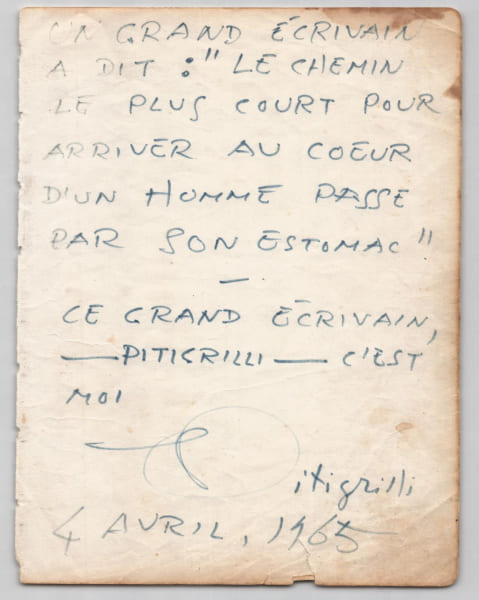 UN GRAND ÉCRIVAIN
A DIT : "LE CHEMIN
LE PLUS COURT POUR
ARRIVER AU COEUR
D'UN HOMME PASSE
PAR SON ESTOMAC"
—
CE GRAND ÉCRIVAIN,
— PITIGRILLI — C'EST
MOI
Pitigrilli
4 AVRIL, 1965